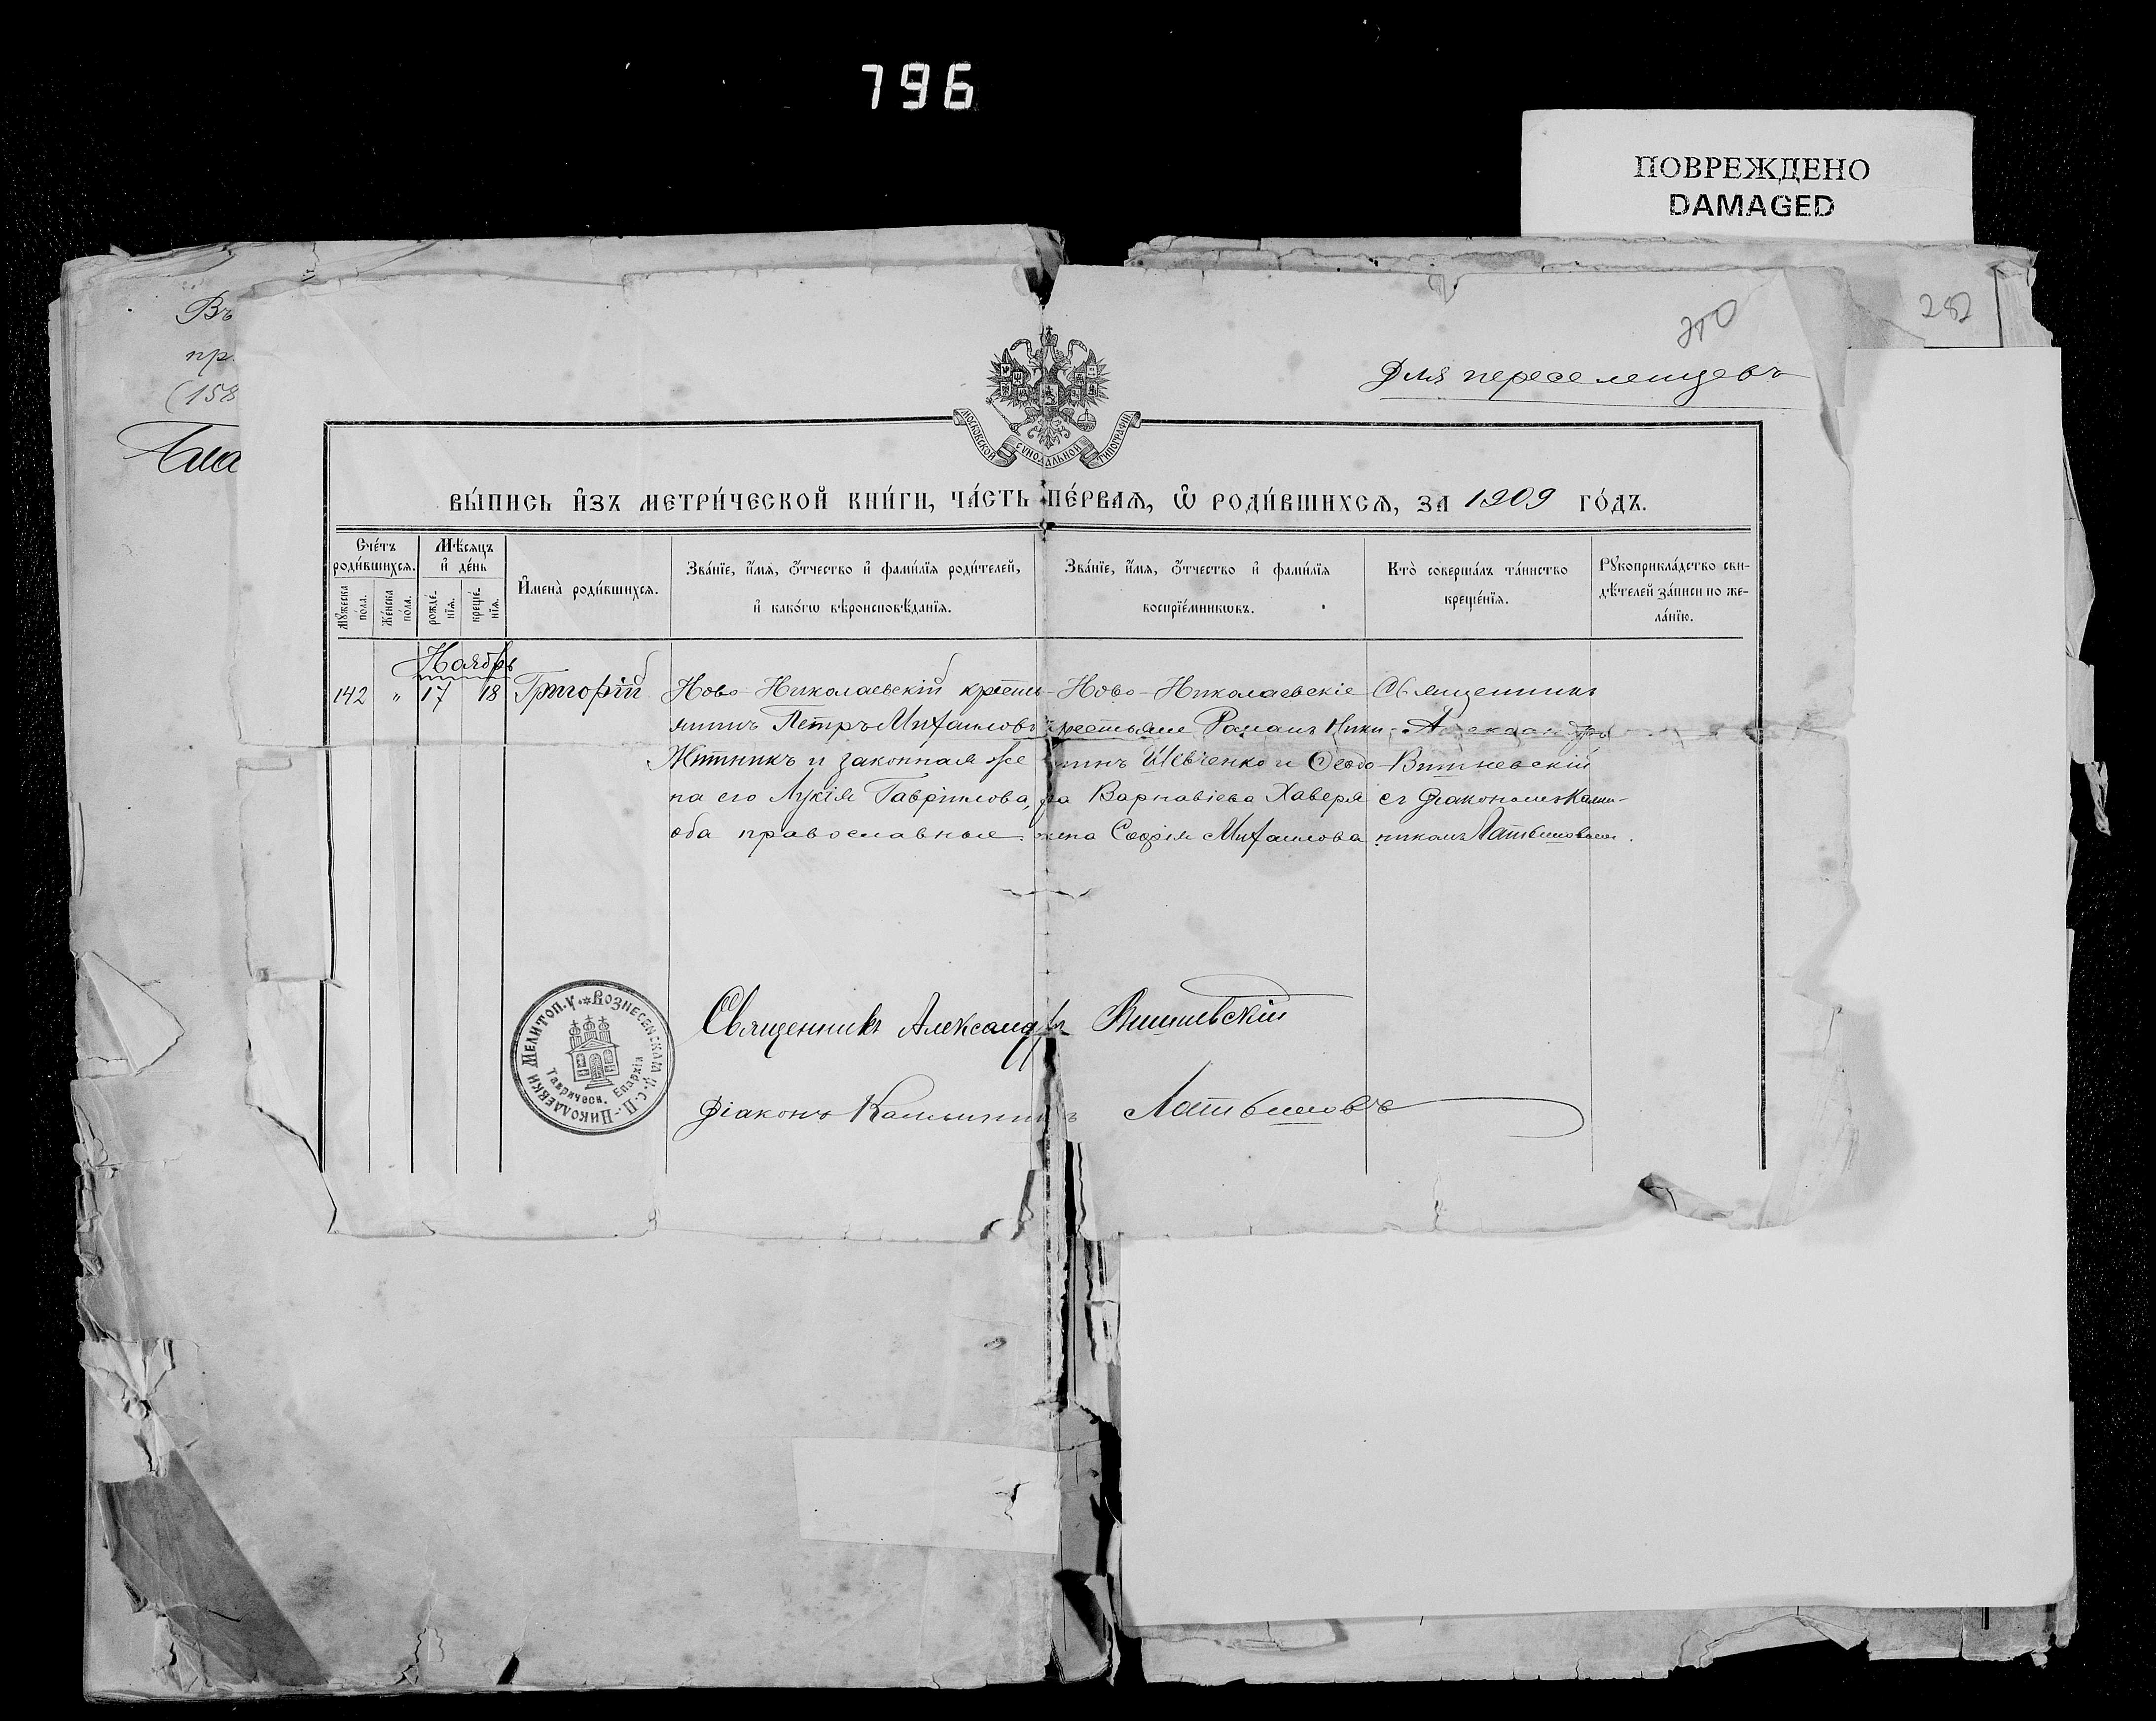 796
ПОВРЕЖДЕНО
DAMAGED
282
Въ
пр
(158
Для переселенцевъ
МОСКОВСКОЙ СѴНОДАЛЬНОЙ ТИПОГРАФІИ
ВЫ́ПИСЬ И҆ЗЪ МЕТРИ́ЧЕСКОЙ КНИ́ГИ, ЧА́СТЬ ПЕ́РВАѦ, Ѡ҆ РОДИ́ВШИХСѦ, ЗА 1909 ГО́ДЪ.
Сче́тъ
роди́вшихсѧ.
Мѣ́сѧцъ
и҆ де́нь
Мꙋ́жеска
по́ла.
Же́нска
по́ла.
рожде́-
нїѧ.
креще́-
нїѧ.
И҆мена̀ роди́вшихсѧ.
Зва́нїе, и҆́мѧ, ѻ҆́тчество и҆ фами́лїѧ роди́телей,
и҆ како́гѡ вѣроисповѣ́данїѧ.
Зва́нїе, и҆́мѧ, ѻ҆́тчество и҆ фами́лїѧ
воспрїе́мникѡвъ.
Кто̀ соверша́лъ та́инство
креще́нїѧ.
Рꙋкоприкла́дство сви-
дѣ́телей за́писи по же-
ла́нїю.
Ноябрь
142 " 17 18 Григорій
Ново-Николаевскій крестья-
нинъ Петръ Михаиловъ
Житникъ и законная же
на его Лукія Гаврiилова,
оба православные.
Ново-Николаевскіе
крестьяне Романъ Ники-
тинъ Шевченко и Ѳеодо-
ра Варнавіева Хаверя
жена Софія Михаилова
Священникъ
Александръ
Вишневскій
съ діакономъ Калин-
никомъ Латышовымъ.
Священникъ Александръ Вишневскій
Діаконъ Калинникъ Латышовъ
ВОЗНЕСЕНСКАЯ Ц. С. Н.-НИКОЛАЕВКИ МЕЛИТОП. У.
Таврическ. Епархіи